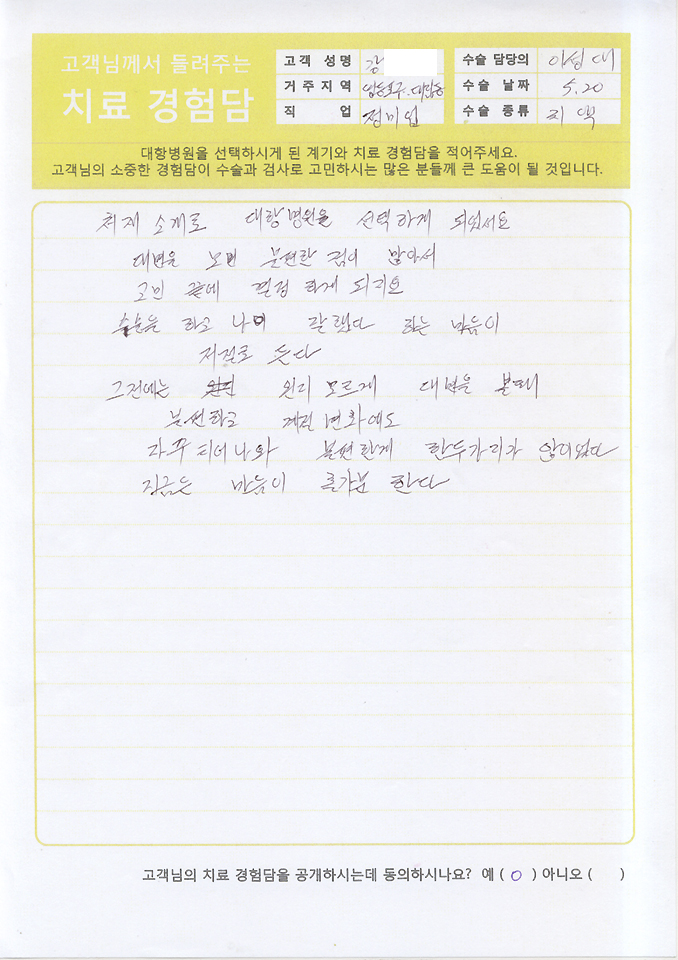 고객님께서 들려주는
치료 경험담
고객 성명 강
거주지역 영등포구.대림동
직 업 정미업
수술 담당의 이성대
수술 날짜 5.20
수술 종류 치액
대항병원을 선택하시게 된 계기와 치료 경험담을 적어주세요.
고객님의 소중한 경험담이 수술과 검사로 고민하시는 많은 분들께 큰 도움이 될 것입니다.
처제 소개로 대항병원을 선택하게 되었서요
대변을 보면 불편한 점이 많아서
고민 끝에 결정 하게 되지요
수술을 하고 나이 잘했다 하는 마음이
저절로 듣다
그전에는 왼지 모르게 대변을 볼때
불편하고 계절 변화에도
자꾸 티어나와 불편한게 한두가리가 않이었다
지금은 마음이 홀가분 한다
고객님의 치료 경험담을 공개하시는데 동의하시나요? 예 ( O ) 아니오 ( )